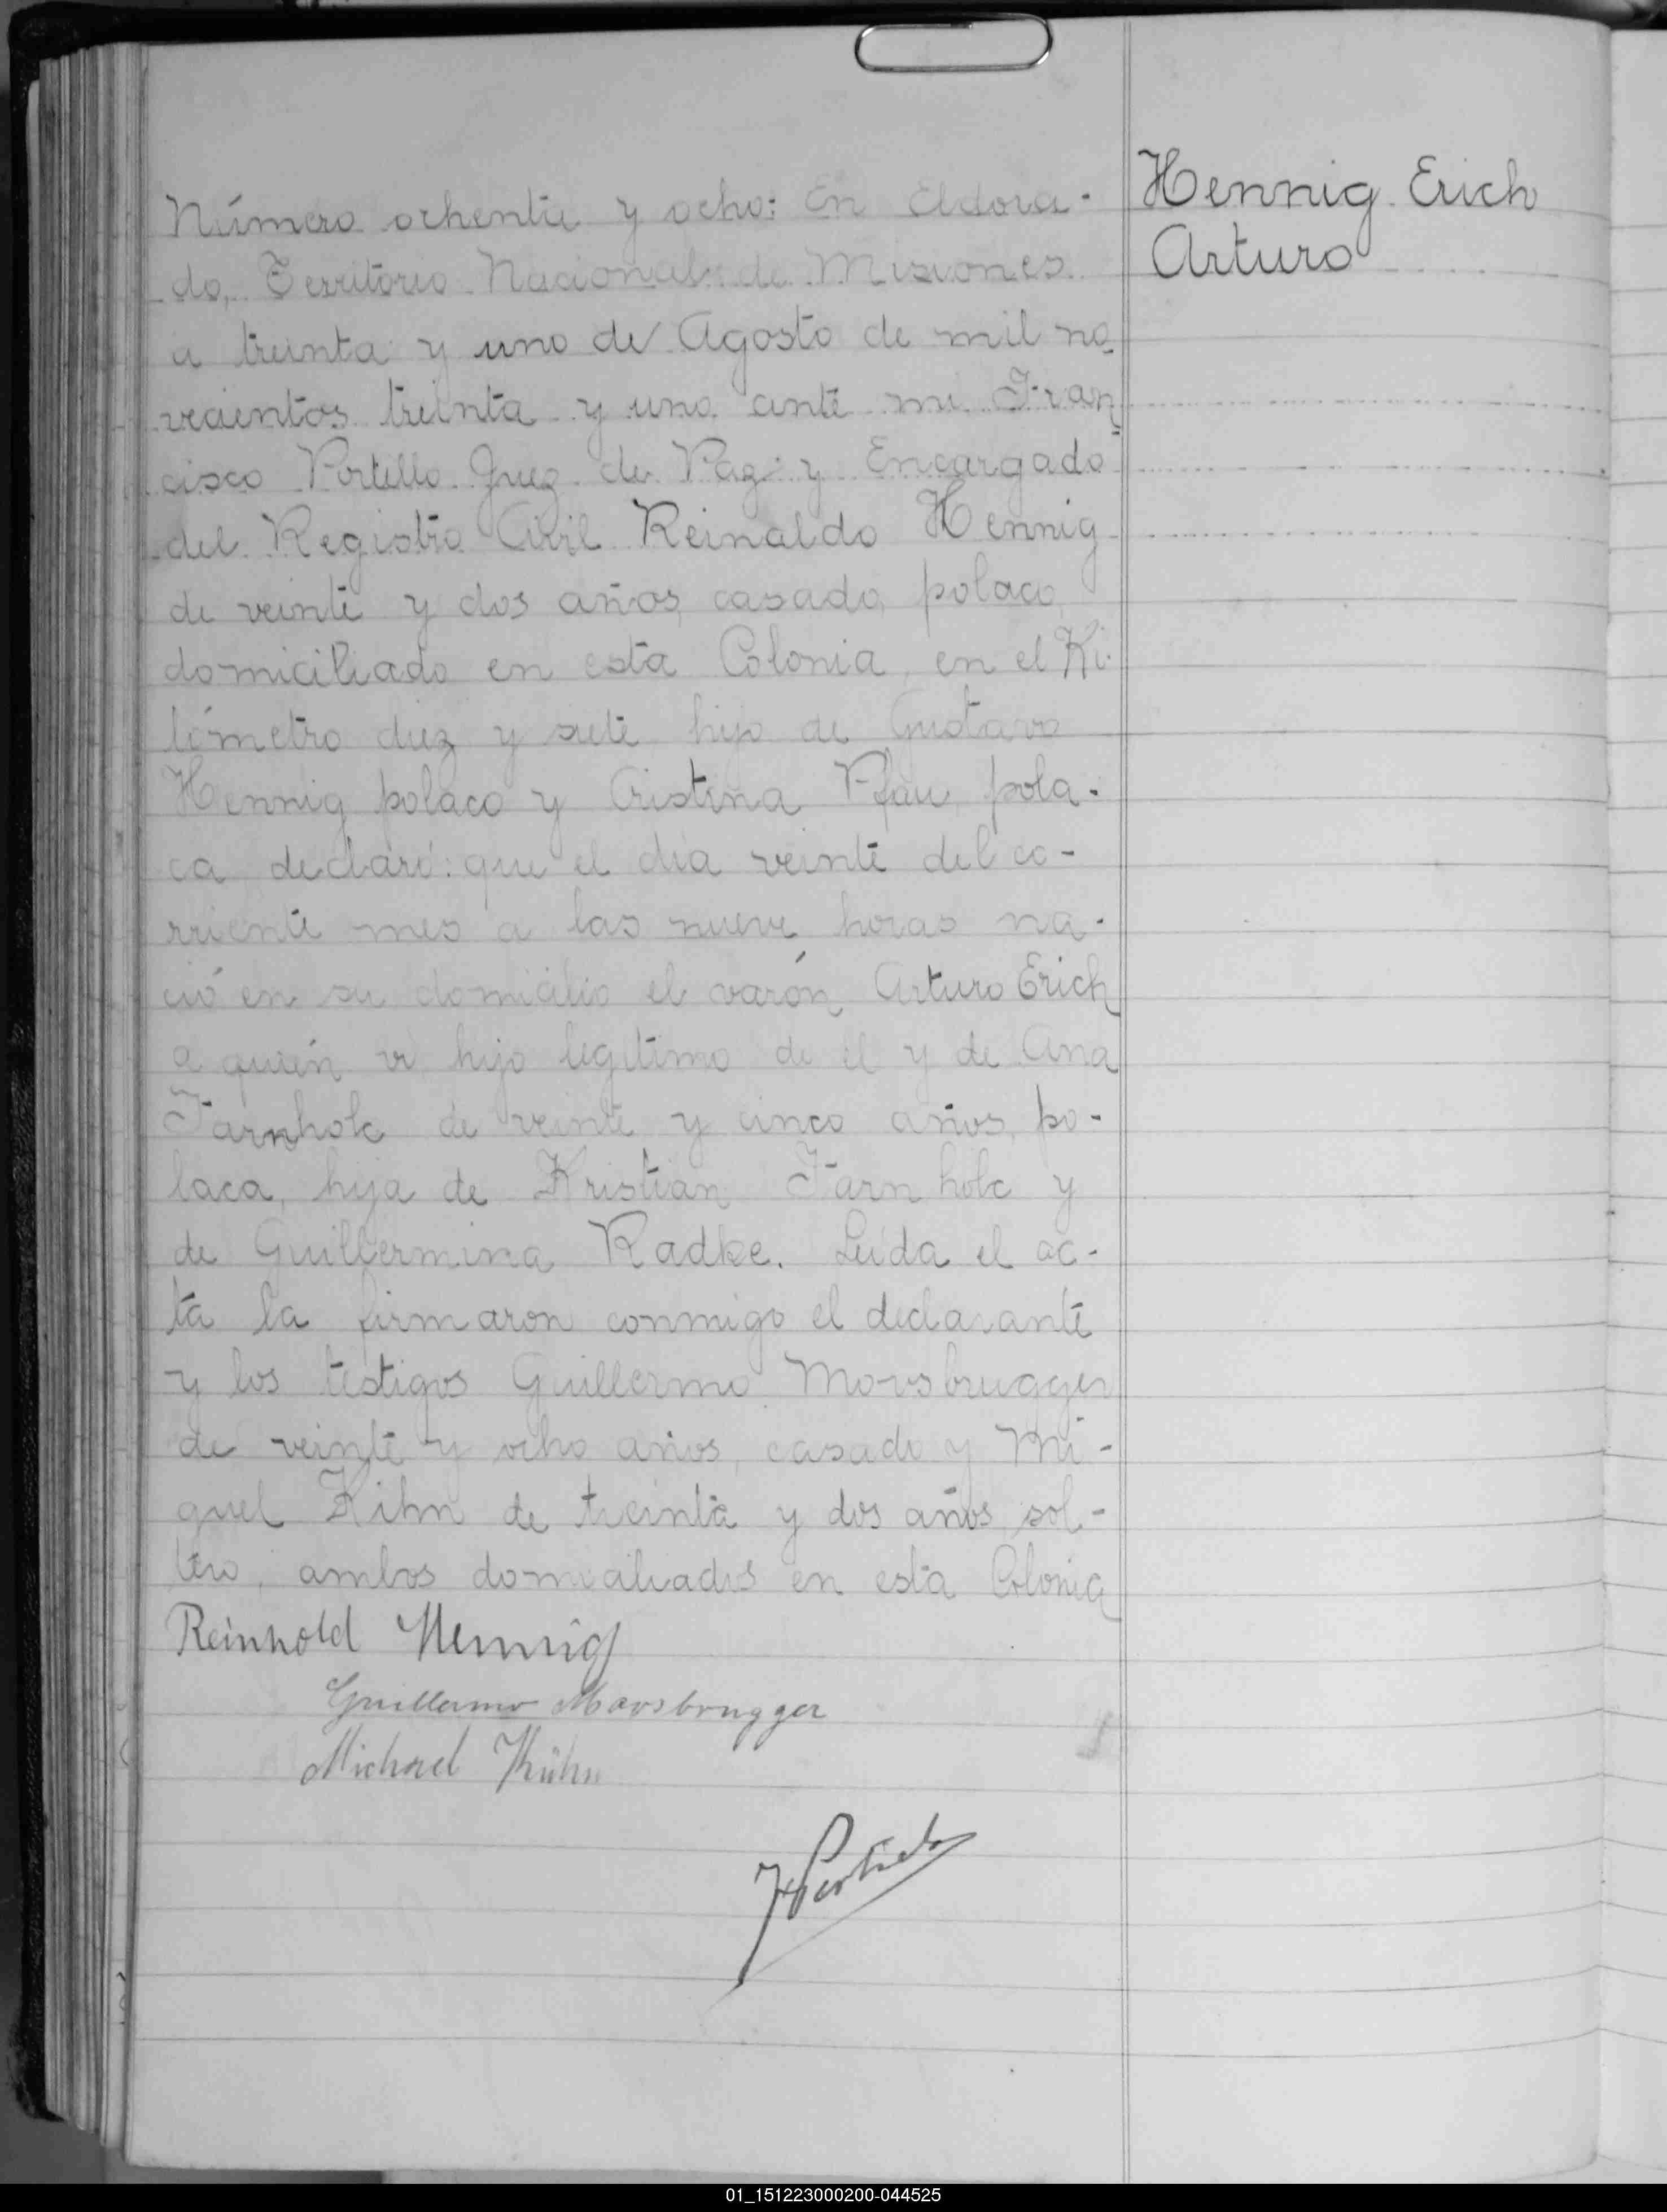 Hennig Erich
Arturo
Número ochenta y ocho: En Eldora-
do, Territorio Nacional de Misiones
a treinta y uno de Agosto de mil no
vecientos treinta y uno ante mi Fran
cisco Portillo Juez de Paz y Encargado
del Registro Civil Reinaldo Hennig
de veinte y dos años, casado, polaco,
domiciliado en esta Colonia, en el Ki-
lómetro diez y siete hijo de Gustavo
Hennig polaco y Cristina Pfau, pola-
ca declaró: que el día veinte del co-
rriente mes a las nueve horas na-
ció en su domicilio el varón Arturo Erich
a quién vi hijo legítimo de el y de Ana
Farnholc de veinte y cinco años, po-
laca, hija de Kristian Farnholc y
de Guillermina Radke. Leida el ac-
ta la firmaron conmigo el declarante
y los testigos Guillermo Moosbrugger
de veinte y ocho años, casado y Mi-
guel Kihn de treinta y dos años, sol-
tero, ambos domiciliados en esta Colonia
Reinhold Hennig
Guillermo Moosbrugger
Michael Kühn
F Portillo
01_151223000200-044525